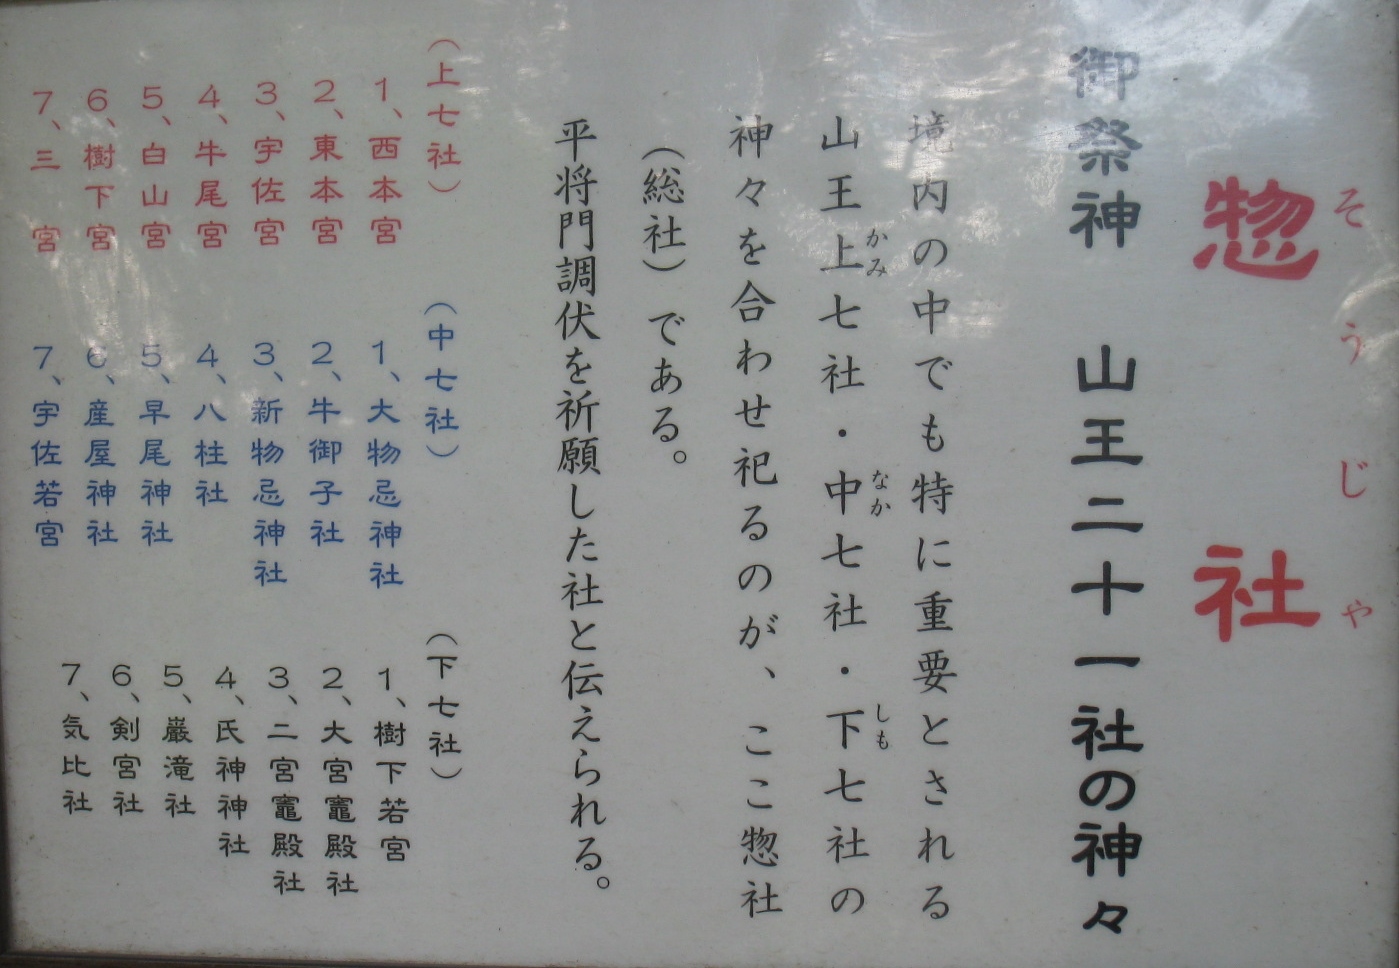 そうじゃ
惣社
御祭神　山王二十一社の神々
境内の中でも特に重要とされる
山王上七社・中七社・下七社の
かみ
なか
しも
神々を合わせ祀るのが、ここ惣社
（総社）である。
平将門調伏を祈願した社と伝えられる。
（上七社）
1、西本宮
2、東本宮
3、宇佐宮
4、牛尾宮
5、白山宮
6、樹下宮
7、三　宮
（中七社）
1、大物忌神社
2、牛御子社
3、新物忌神社
4、八柱社
5、早尾神社
6、産屋神社
7、宇佐若宮
（下七社）
1、樹下若宮
2、大宮竈殿社
3、二宮竈殿社
4、氏神神社
5、巌滝社
6、剣宮社
7、気比社